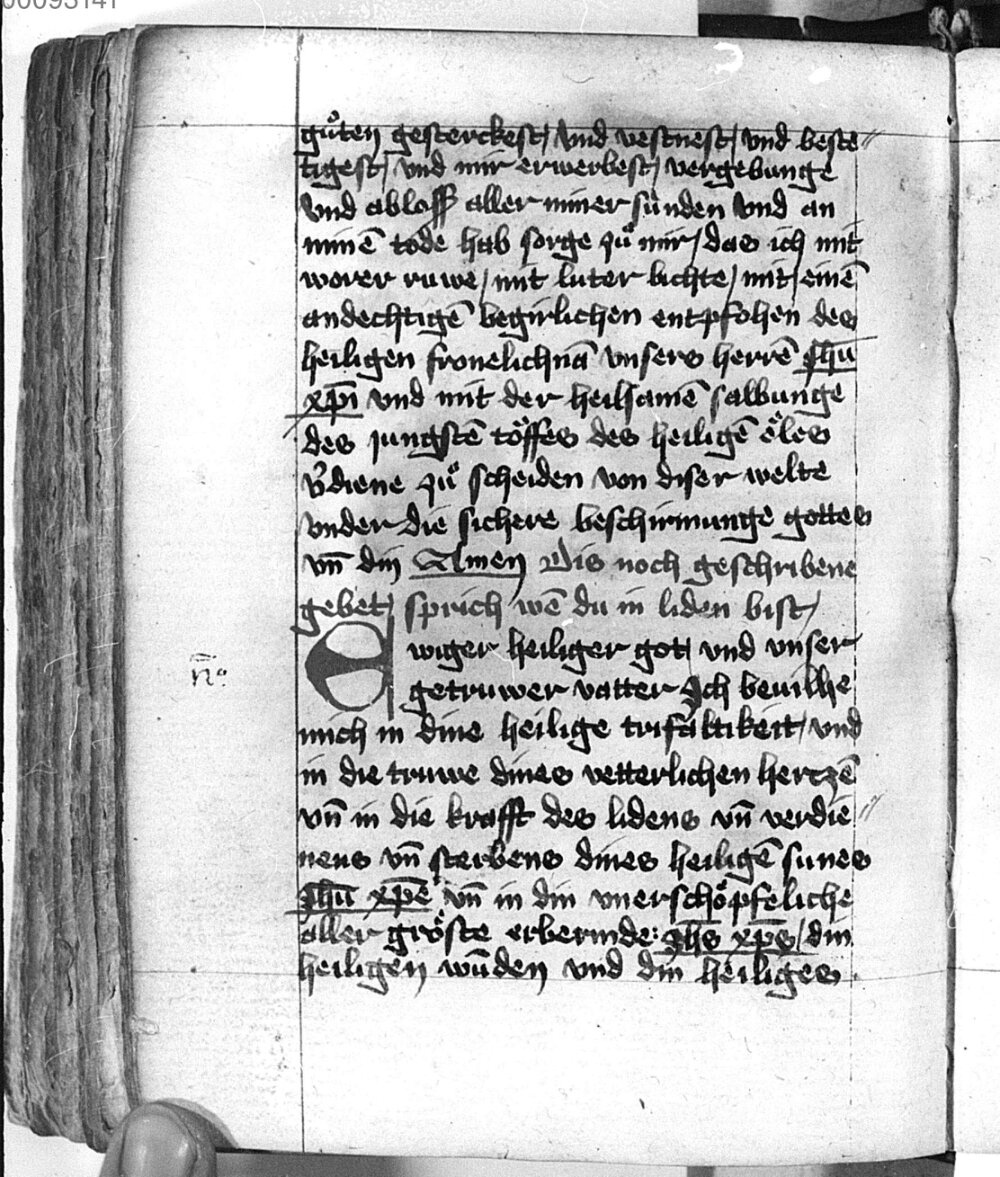 00093141
guͦten gesterckest / vnd vestnest / vnd beste //
tigest / vnd mir erwerbest / vergebunge
vnd abloß aller miner sünden vnd an
minē tode hab sorge zuͦ mir / das ich mit
worer ruwe / mit luter bichte / mit einē
andechtigē begirlichen entpfohen des
heiligen fronelichnā vnsers herrē Jhū
xp̄i vnd mit der heilsamē salbunge
des jungstē töffes des heiligē öles
v͛diene zuͦ scheiden von diser welte
vnder die sichere beschirmunge gottes
vn̄ din Amen Dis noch geschribene
gebet / sprich wē du in liden bist /
Ewiger heiliger got / vnd vnser
n̄o
getruwer vatter Ich bevilhe
mich in dine heilige trifaltikeit / vnd
in die truwe dines vetterlichen hertzē
vn̄ in die krafft des lidens vn̄ verdie //
nens vn̄ sterbens dines heiligē sunes
Jhū xp̄e vn̄ in din vnerschöpfeliche
aller gröste erbermde : Jhs xp̄s / din
heiligen wūden vnd din heiliges